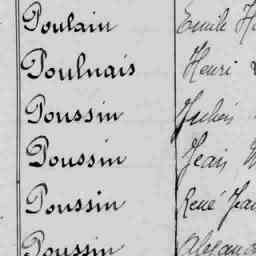 Poulain Emile
Poulnais Henri
Poussin Julien
Poussin Jean
Poussin René Jean
Poussin